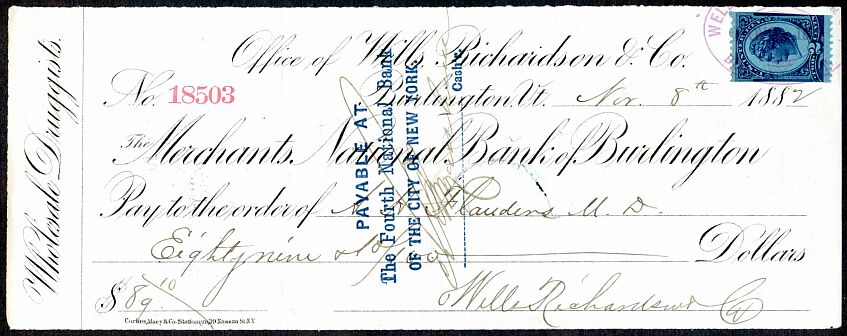 Wholesale Druggists.
Office of Wells, Richardson & Co.
No. 18503 Burlington, Vt. Nov. 8th 1882
The Merchants National Bank of Burlington
Pay to the order of Flanders M. D.
Eighty nine & 10/100 Dollars
$ 89 10
Wells Richardson & Co
Corlies, Macy & Co. Stationers, 39 Nassau St. N.Y.
PAYABLE AT
The Fourth National Bank
OF THE CITY OF NEW YORK.
Cash'r.
WEL